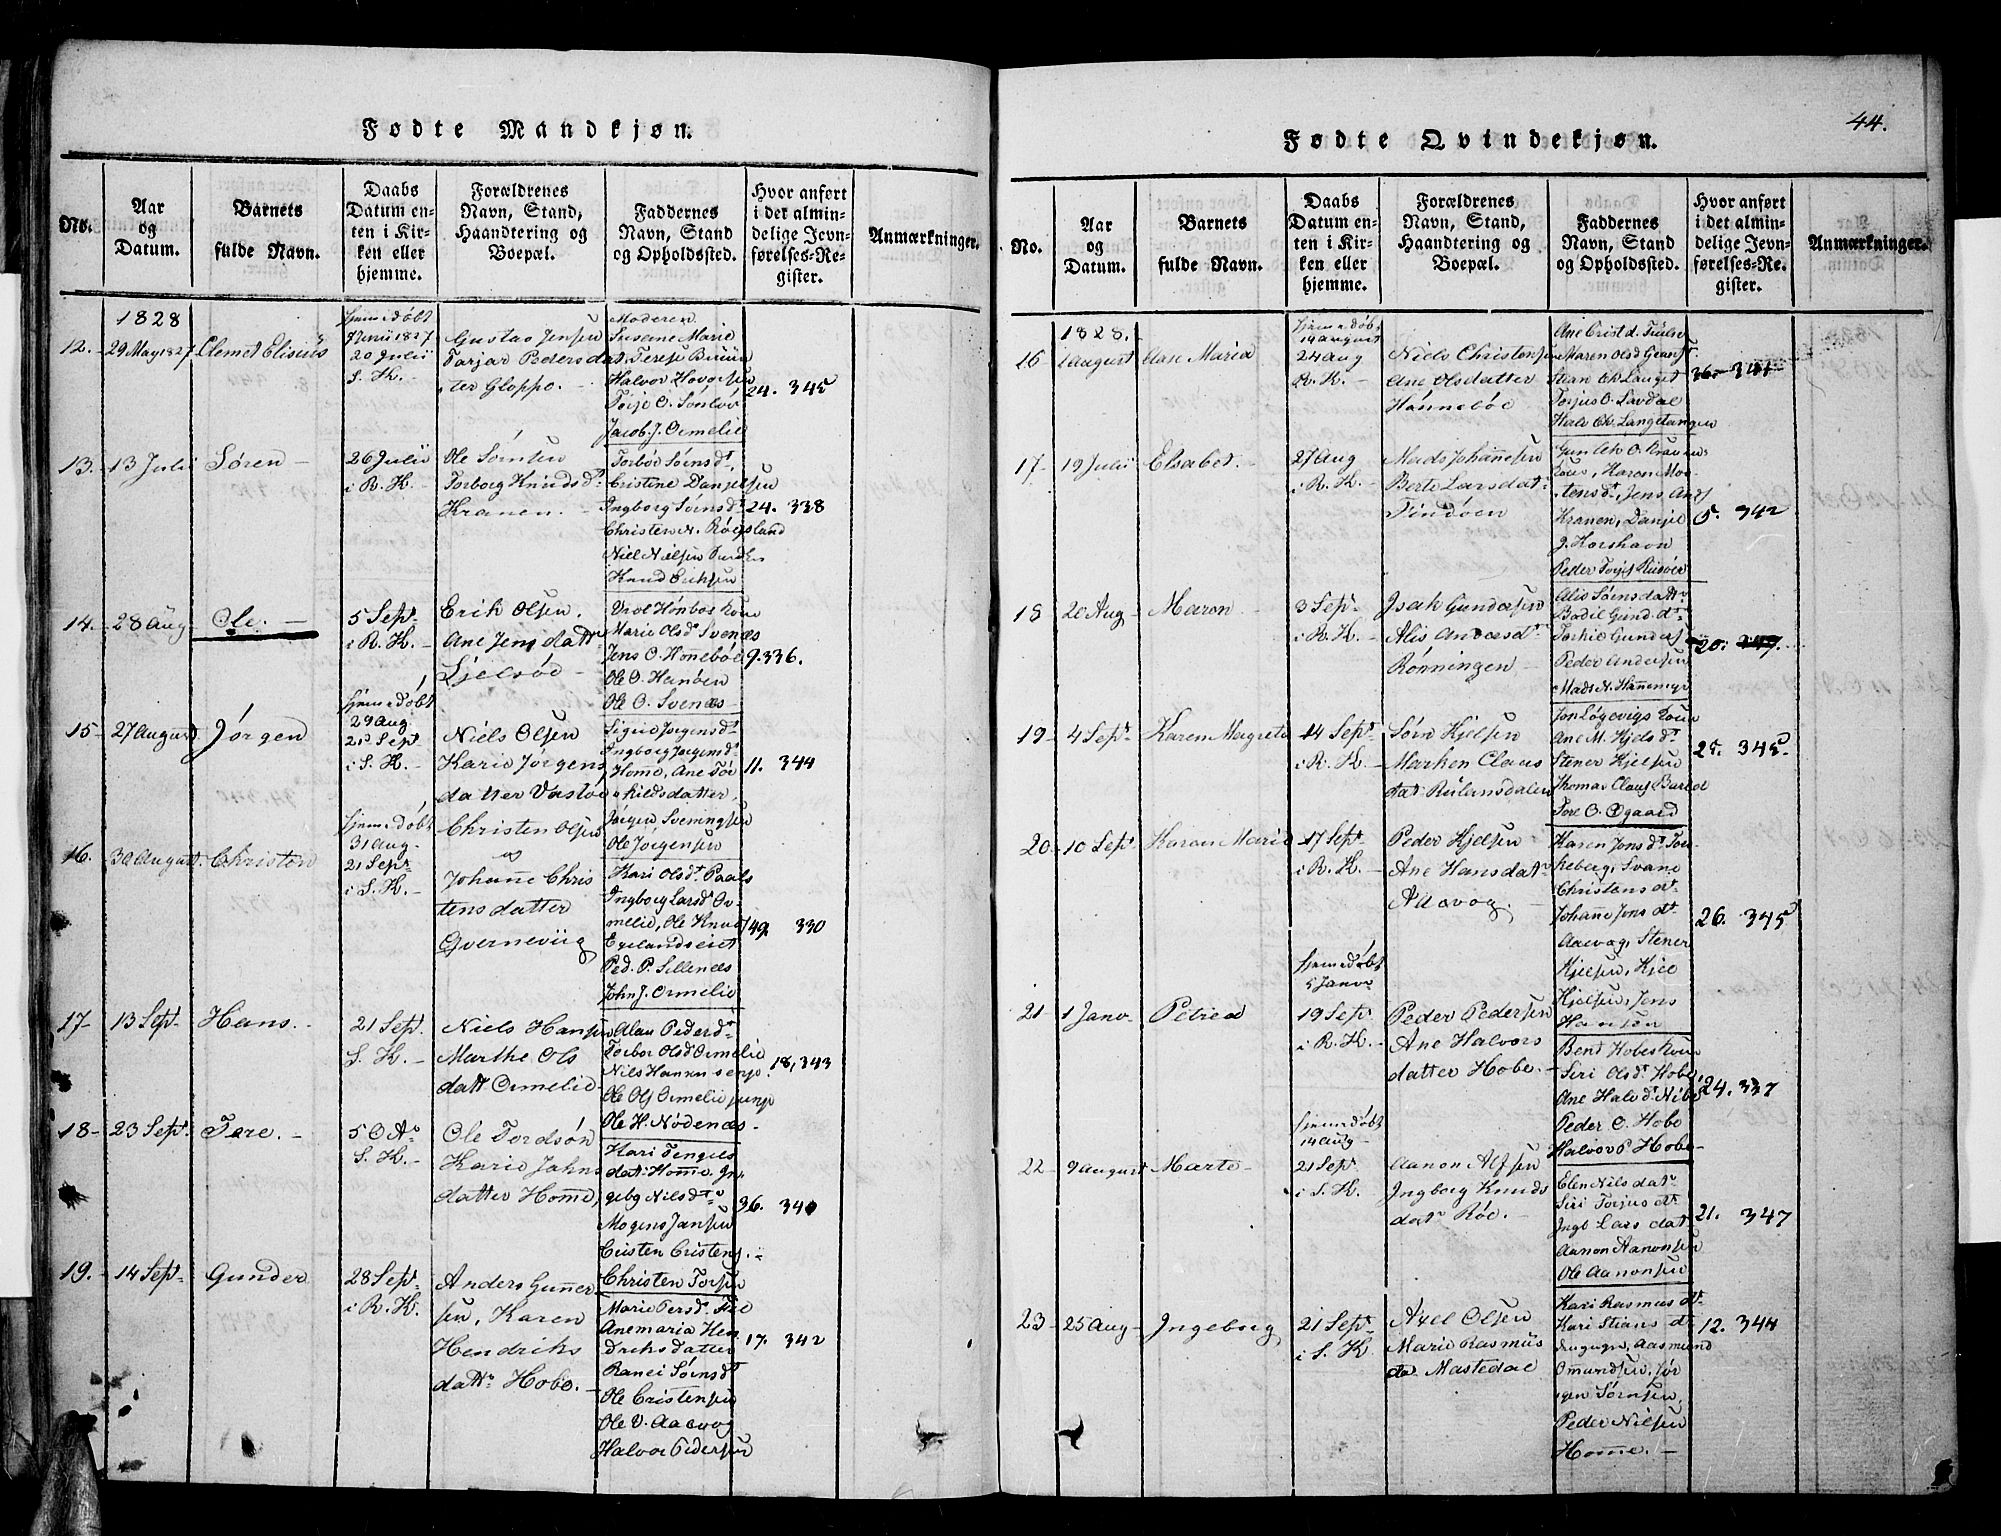 Fødte Mandkjøn.
No.
Aar
og
Datum.
Barnets
fulde Navn.
Daabs
Datum en-
ten i Kir-
ken eller
hjemme.
Forældrenes
Navn, Stand,
Haandtering og
Boepæl.
Faddernes
Navn, Stand
og Opholdssted.
Hvor anført
i det almin-
delige Jevn-
førelses-Re-
gister.
Anmærkninger.
1828
12.
29 May 1827
Clemet Elisius
hjemedøbt
7 Junii 1827
20 Julii
S. K.
Gustav Jensen
Tarjar Peders dat
ter Gloppe.
Moderen
Susanne Marie
Halvor Hovorsen
Jacob. J. Ormelie
24. 345
13.
13 Julii
Søren
26 Julii
i R. K.
Ole Sørnsen
Torborg Knuds dt
Kranen.
Torbør Sørnsdt
Cristine Danjelsen
Ingborg Sørnsdt
Christen N. Røigsland
Niel Nielsen
Knud Eriksen
24. 338
14.
28 Aug
Ole.
5 Sept
i R. K.
Erik Olsen.
Ane Jens datt
Marie Olsd Svenæs
Jens O. Honnebøe
Ole O. Hanøen
Ole O. Svenæs
9. 336.
15
27 August
Jørgen
hjemedøbt
29 Aug
21 Sept
i S. K.
Niels Olsen
Karie Jørgens
datter Vastøe
Sigrid Jørgensdt
Ingborg Jørgensdt
Homme, Ane Tor
kildsdatter.
Jørgen Sveningsen
Ole Jørgensen
11. 344
16.
30 August
Christen
hjemedøbt
31 Aug
21 Sept
i S. K.
Christen Olsen
og
Johanne Chris
tens datter
Qverneviig
Kari Olsdt Paals
Ingborg Larsd Or
melie, Ole Knud
Egelandseiet
Ped. P. Sellenæs
John J. Ormelie
49. 330
17
13 Sept
Hans.
21 Sept
S. K.
Niels Hansen
Marthe Ols
datt Ormelie
Torbor Olsd Ormelie
Nils Hansen senp.
Ole Ols Ormelie jung
Ole H. Nødenæs
18, 343
18
23 Sept
Tere.
5 O
S. K.
Ole Tordsøn
Karie Jahns
datter Homme,
Kari Tengels
dat Homme, In
gebg Nilsdt
Mogens Jansen
Cristen Cristens.
Christen Torsen
36. 340
19.
14 Sept
Gunder
28 Sept
i R. K.
Anders Gunner
sen, Karen
Hendriks
datt Hobe.
Anemaria Hen
driksdatter
Ranei Sørnsdt
Ole Cristensen
Ole V. Aasvog
Halvor Pedersen
17. 342
44.
Fødte Qvindekjøn.
No.
Aar
og
Datum.
Barnets
fulde Navn.
Daabs
Datum en-
ten i Kir-
ken eller
hjemme.
Forældrenes
Navn, Stand,
Haandtering og
Boepæl.
Faddernes
Navn, Stand
og Opholdssted.
Hvor anført
i det almin-
delige Jevn-
førelses-Re-
gister.
Anmærkninger.
1828.
16
1 August
Aase Maria
hjemedøbt
14 august
24 Aug
R. K.
Niels Christensen
Ane Olsdatter
Hønnebøe
Torjus O. Lavdal
Halv Ch. Langetangen
36. 341
17
19 Julii
Elsabet.
27 Aug
i R. K.
Mads Johannesen
Berte Larsdat
Tondøen
Kranen, Danjel
J. Korshavn
Peder Torjes Risøer
5. 342
18
20 Aug
Maren
3 Sept
i R. K.
Isak Gundersen
Alis Andersdt
Rønningen
Alis Sørnsdatt
Bodil Gund dt
Peder Andersen
Mads N. Hannemyr
20. 347.
19
4 Sept
Karen Magrete
14 Sept
i R. K.
Sørn Kjelsen
Marken Claus
dat Rulansdalen
Ane M. Kjelsdt
Stener Kjelsen
Thomas Claus
Tore O. Øgaard
25. 345
20
10 Sept
Karen Marie
17 Sept
i R. K.
Peder Kjelsen
Ane Hansdat
Aasvog.
Karen Jonsdt Tor
keberg, Svane
Christens dt
Johanne Jens dt
Aasvog, Stener
Kjelsen, Kjel
Kjelsen, Jens
Hansøn
26. 345
21
1 Janv.
Petrea
hjemedøbt
5 Janv
19 Sept
i R. K.
Peder Pedersen
Ane Halvors
datter Hobe.
Bent Hobes Kone
Siri Olsdt Hobe
Ane Halvd Nibe
Peder O. Hobe
Halvor P. Hobe
24. 337
22
9 August
Marte
hjemedøbt
14 Aug
21 Sept
i S. K.
Aanon Alfsen
Ingborg Knuds
dat Røe.
Elen Nils dat
Siri Torjus dt
Ingb Lars dat
Aanon Aanonsen
Ole Aanonsen
21. 347
23
25 Aug
Ingeborg
21 Sept
i S. K
Axel Olsen
Marie Rasmus
da Mastedal
Kari Rasmus dt
Kari Stians d
Aasmund
Omundsen, Jør
gen Sørnsen
Peder Nielsen
Homme.
12. 344